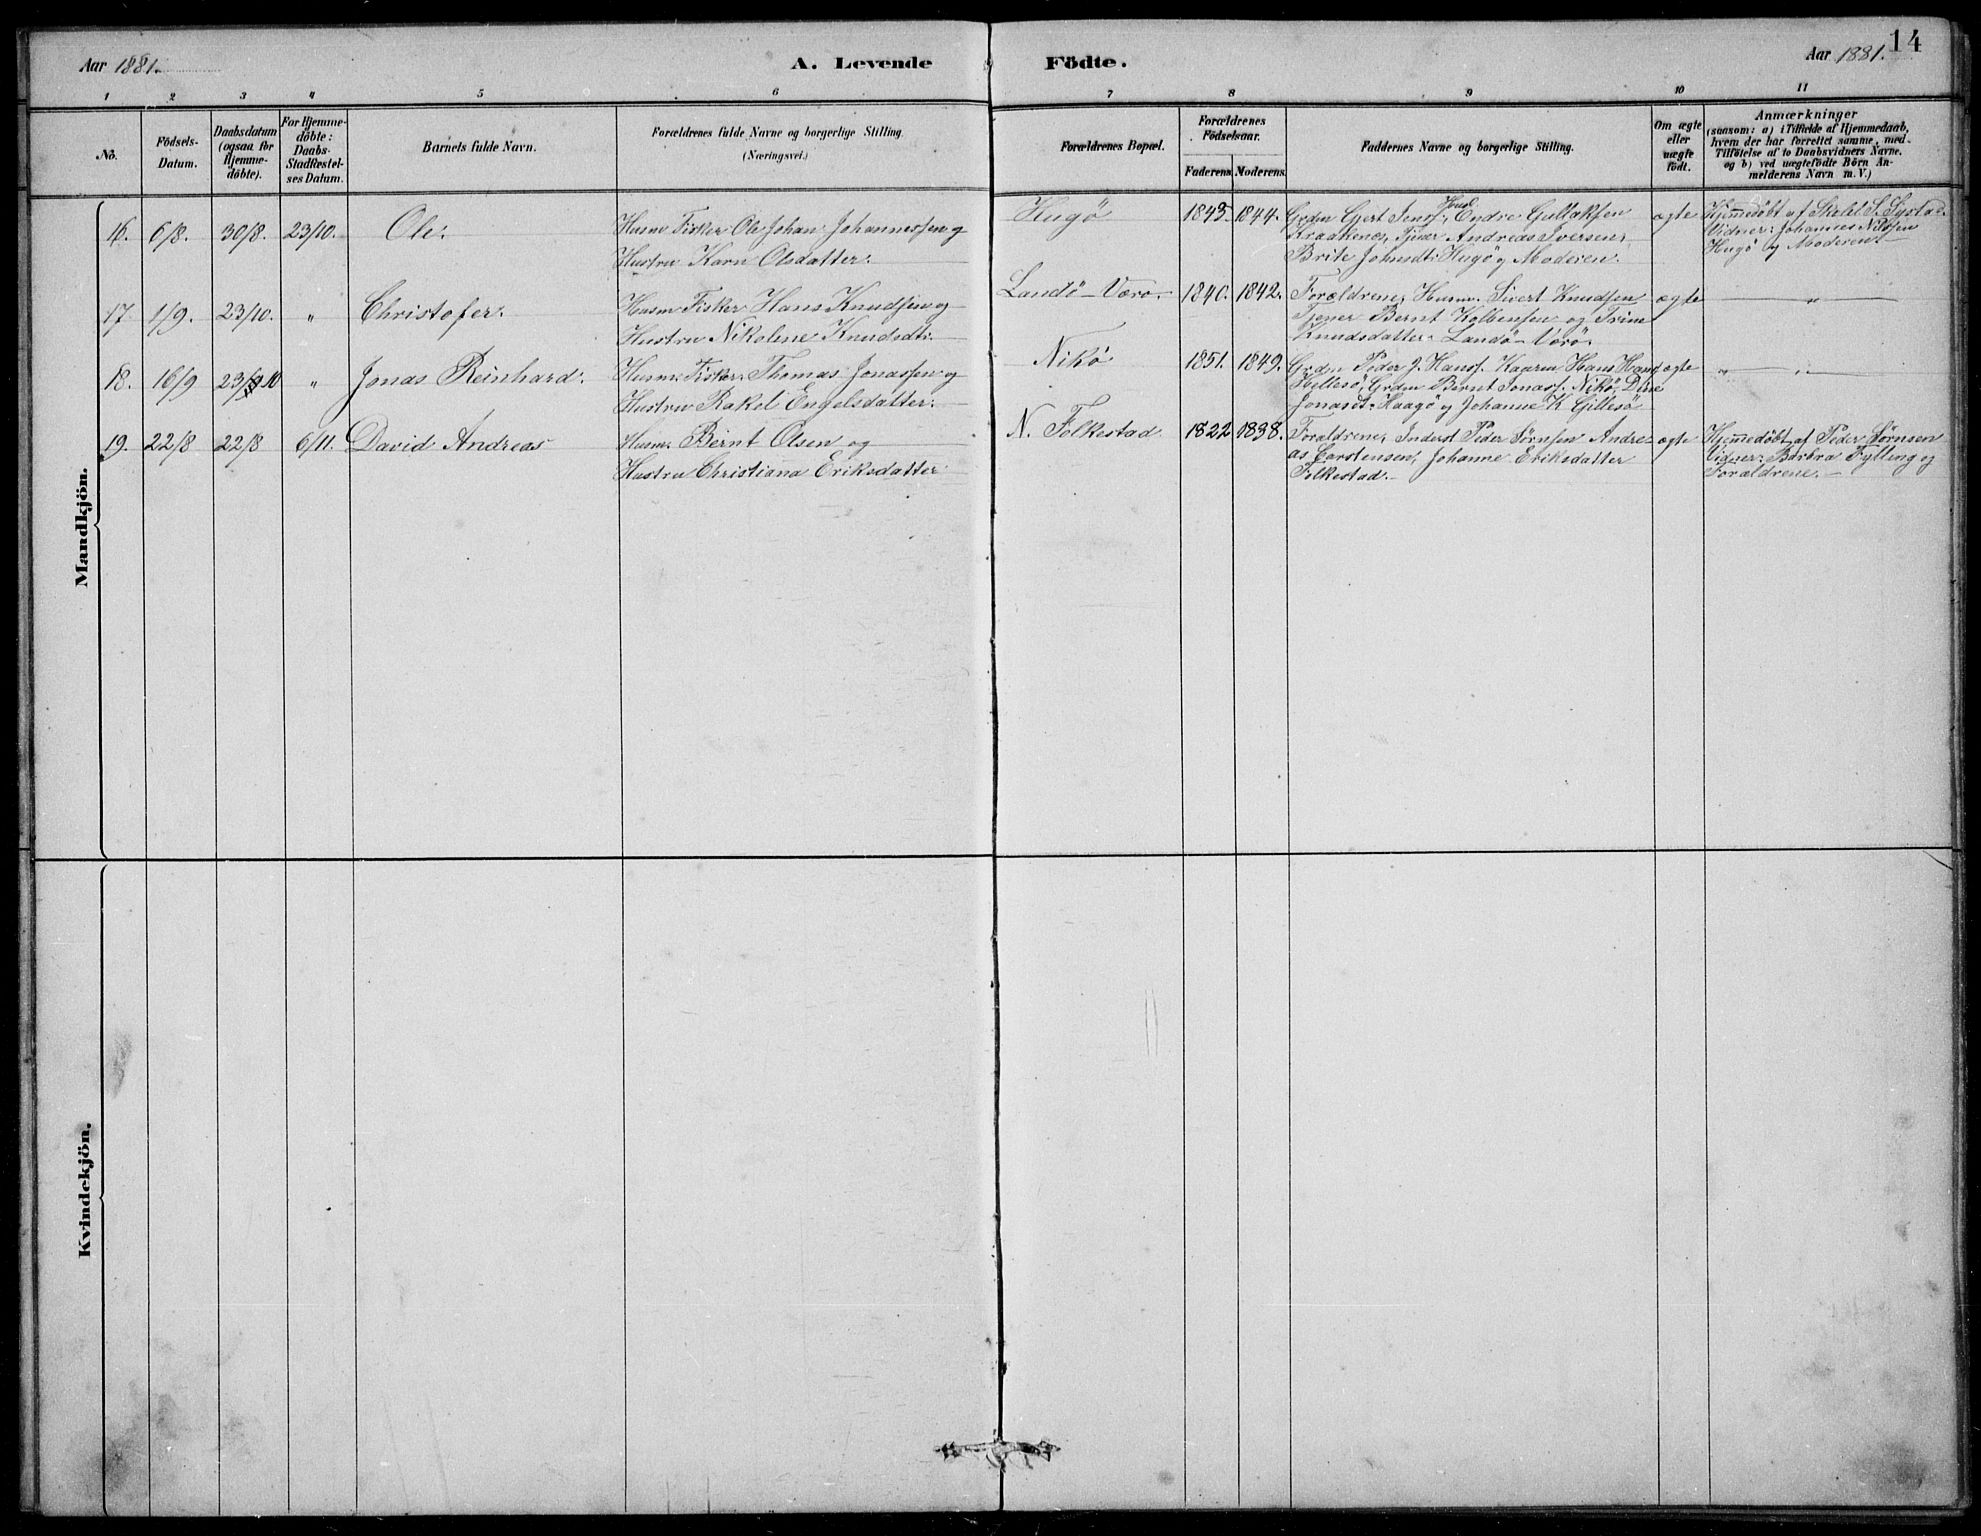 14
Aar 1881. A. Levende Födte. Aar 1881.
1 2 3 4 5 6 7 8 9 10 11
No.
Födsels-
Datum.
Daabsdatum
(ogsaa for
Hjemme-
döbte).
For Hjemme-
döbte:
Daabs-
Stadfæstel-
ses Datum.
Barnets fulde Navn.
Forældrenes fulde Navne og borgerlige Stilling.
(Næringsvei.)
Forældrenes Bopæl.
Forældrenes
Födselsaar.
Faderens. Moderens.
Faddernes Navne og borgerlige Stilling.
Om ægte
eller
uægte
födt.
Anmærkninger
(saasom: a) i Tilfælde af Hjemmedaab,
hvem der har forrettet samme, med
Tilföielse af to Daabsvidners Navne,
og b) ved uægtefödte Börn An-
melderens Navn m. V.)
Mandkjön.
16. 6/8. 30/8. 23/10. Ole.
Husm Fisker Ole Johan Johannessen og
Hustru Karn Olsdatter.
Hugö 1843. 1844.
Grdm Gjert Jensf. Husm Endre Gullaksen
Kraakenes, Tjener Andreas Iversen,
Brite Johnsdt. Hugö og Moderen.
ægte
Hjemmedöbt af Skolel S. Systad
Vidner: Johannes Nilssen
Hugö og Moderen
17. 1/9. 23/10. " Christofer.
Husm Fisker Hans Knudsen og
Hustru Nikolene Knudsdt.
Landö-Værö. 1840. 1842.
Forældrene, Husm. Sivert Knudsen
Tjener Bernt Kolbensen og Trine
Knudsdatter Landö-Værö.
ægte "
18. 16/9 23/10 " Jonas Reinhard.
Husm. Fisker Thomas Jonassen og
Hustru Rakel Engelsdatter.
Nikö 1851. 1849.
Grdm Peder J. Hansf. Kaaren Hans Hans
Hillesö, Grdm Bernt Jonasf. Nikö, Dine
Jonasdt. Haagö og Johanne K. Gillesö
ægte " "
19. 22/8 22/8 6/11. David Andreas
Husm. Bernt Olsen og
Hustru Christiana Eriksdatter
N. Folkestad 1822 1838.
Forældrene, Inderst Peder Sörnsen Andre-
as Carstensen, Johanne Eriksdatter
Folkestad.
ægte
Hjemmedöbt af Peder Sörnsen
Vidner: Barbra Fylling og
Forældrene.
Kvindekjön.